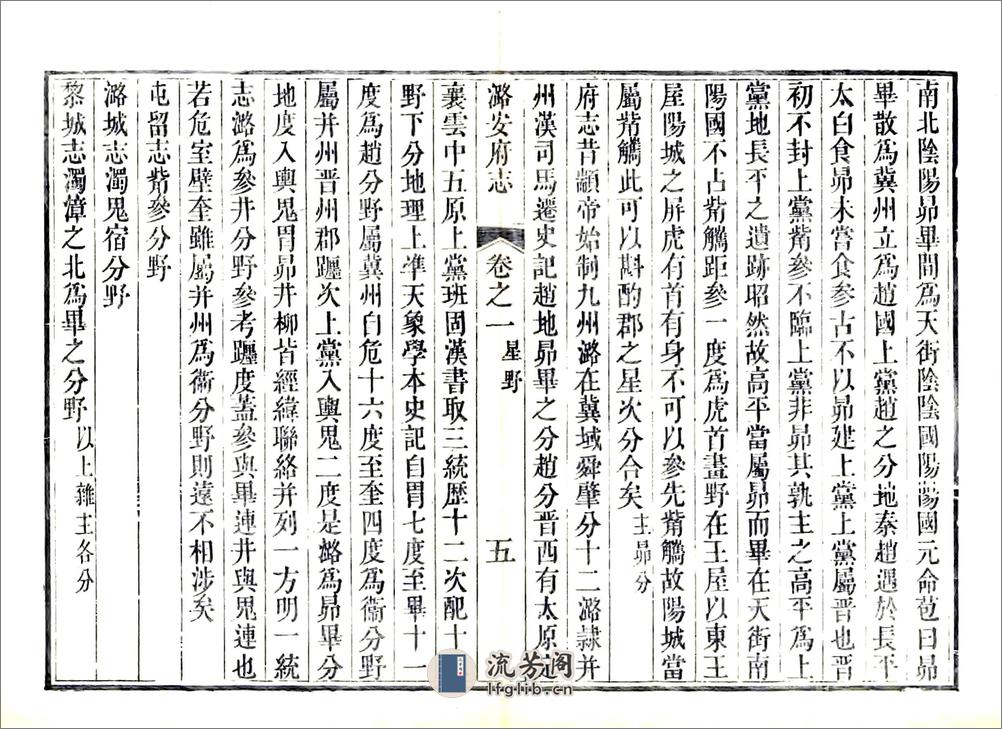 南北陰陽昴畢間爲天街陰陰國陽陽國元命苞曰昴
畢散爲冀州立爲趙國上黨趙之分地秦趙遇於長平
太白食昴未嘗食參古不以昴建上黨上黨屬晉也晉
初不封上黨觜參不臨上黨非昴其孰主之高平爲上
黨地長平之遺跡昭然故高平當屬昴而畢在天街南
陽國不占觜觿距參一度爲虎首晝野在王屋以東王
屋陽城之屏虎有首有身不可以參先觜觿故陽城當
屬觜觿此可以斟酌郡之星次分合矣 主昴分
府志昔顓帝始制九州潞在冀域舜肇分十二潞隷并
州漢司馬遷史記趙地昴畢之分趙分晉西有太原定
潞安府志 卷之一 星野 五
襄雲中五原上黨班固漢書取三統歷十二次配十二
野下分地理上準天象學本史記自胃七度至畢十一
度爲趙分野屬冀州自危十六度至奎四度爲衞分野
屬并州晉州郡躔次上黨入輿鬼二度是潞爲昴畢分
地度入輿鬼胃昴井柳皆經緯聯絡并列一方明一統
志潞爲參井分野參考躔度蓋參與畢連井與鬼連也
若危室壁奎雖屬并州爲衞分野則遠不相涉矣
屯留志觜參分野
潞城志濁鬼宿分野
黎城志濁漳之北爲畢之分野 以上雜主各分
流芳阁
lfglib.cn